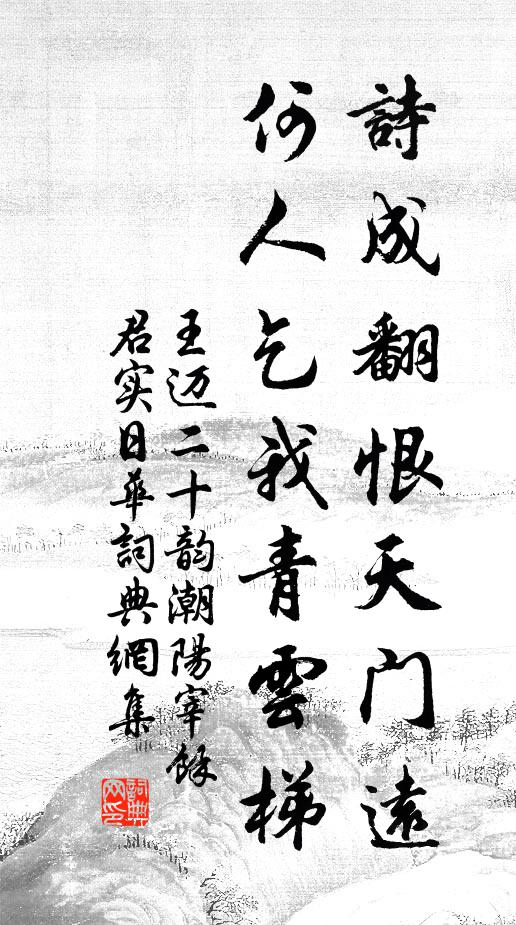 詩成翻恨天门遠
何人乞我青雲梯
王迈二十韵潮陽宰餘
君实日華詞典網集
詞典
网印